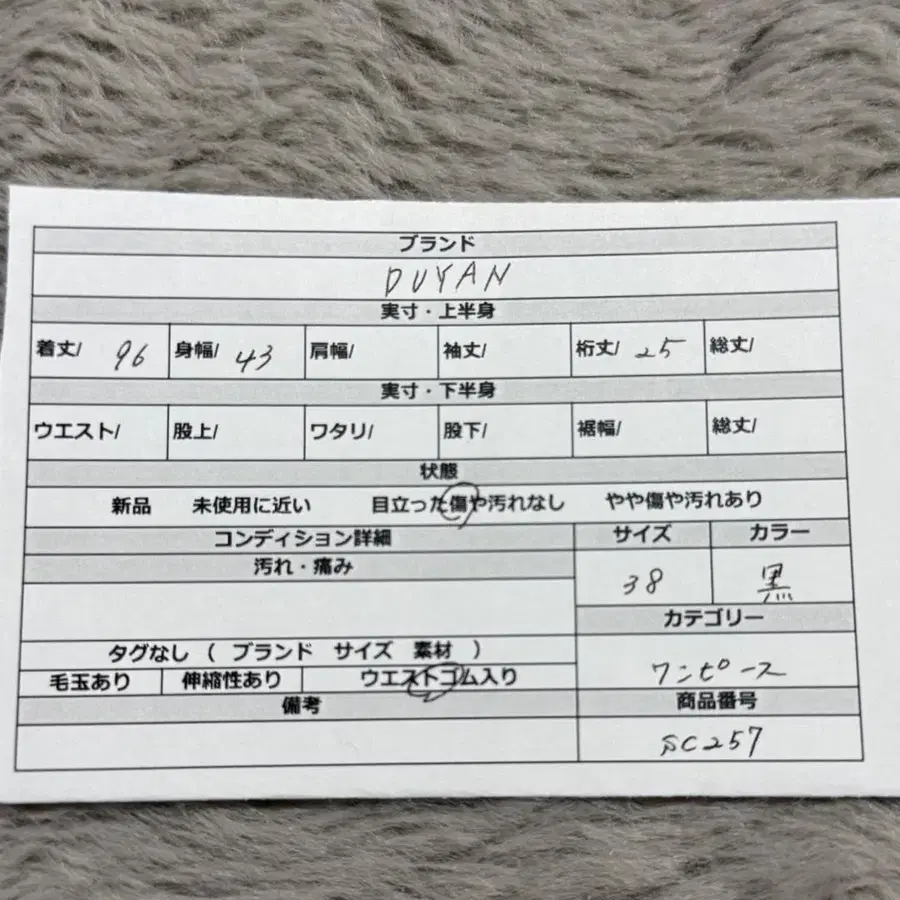 ブランド
DUYAN
実寸・上半身
着丈/ 96 身幅/ 43 肩幅/ 袖丈/ 裄丈/ 25 総丈/
実寸・下半身
ウエスト/ 股上/ ワタリ/ 股下/ 裾幅/ 総丈/
状態
新品 未使用に近い 目立った傷や汚れなし やや傷や汚れあり
コンディション詳細 サイズ カラー
汚れ・痛み
38 黒
カテゴリー
タグなし ( ブランド サイズ 素材 )
ワンピース
毛玉あり 伸縮性あり ウエストゴム入り
備考 商品番号
SC257